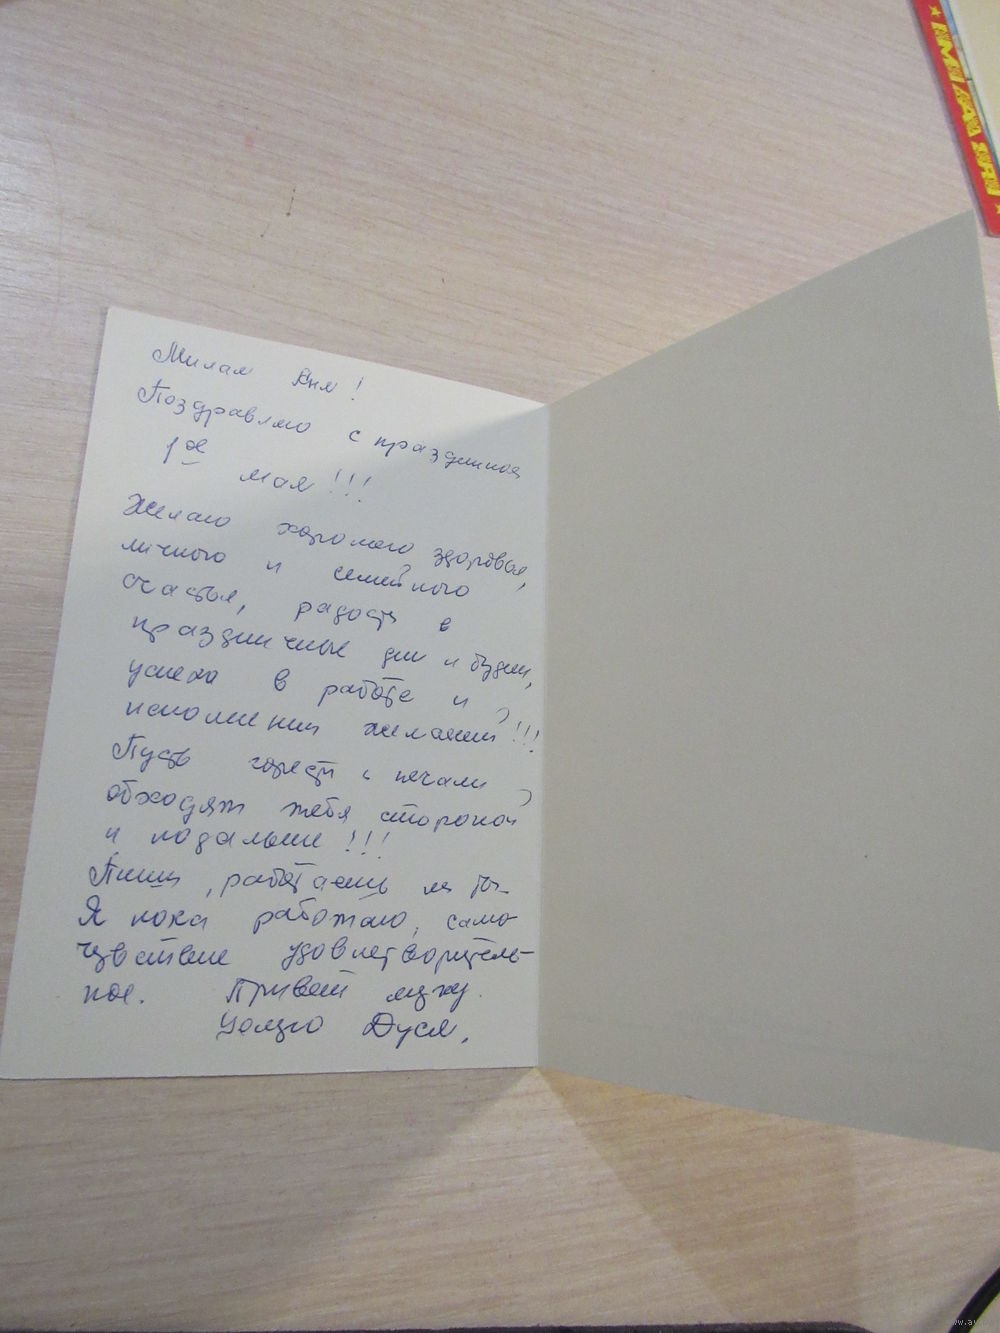 Милая Аня!
Поздравляю с праздником
1ое
мая!!!
Желаю хорошего здоровья,
личного и семейного
счастья, радости в
праздничные дни и будни,
успеха в работе и
исполнения желаний!!!
Пусть горести и печали
обходят тебя стороной
и подальше!!!
Пиши, работаешь ли ты.
Я пока работаю, само-
чувствие удовлетворитель-
ное. Привет мужу.
Целую Дуся.